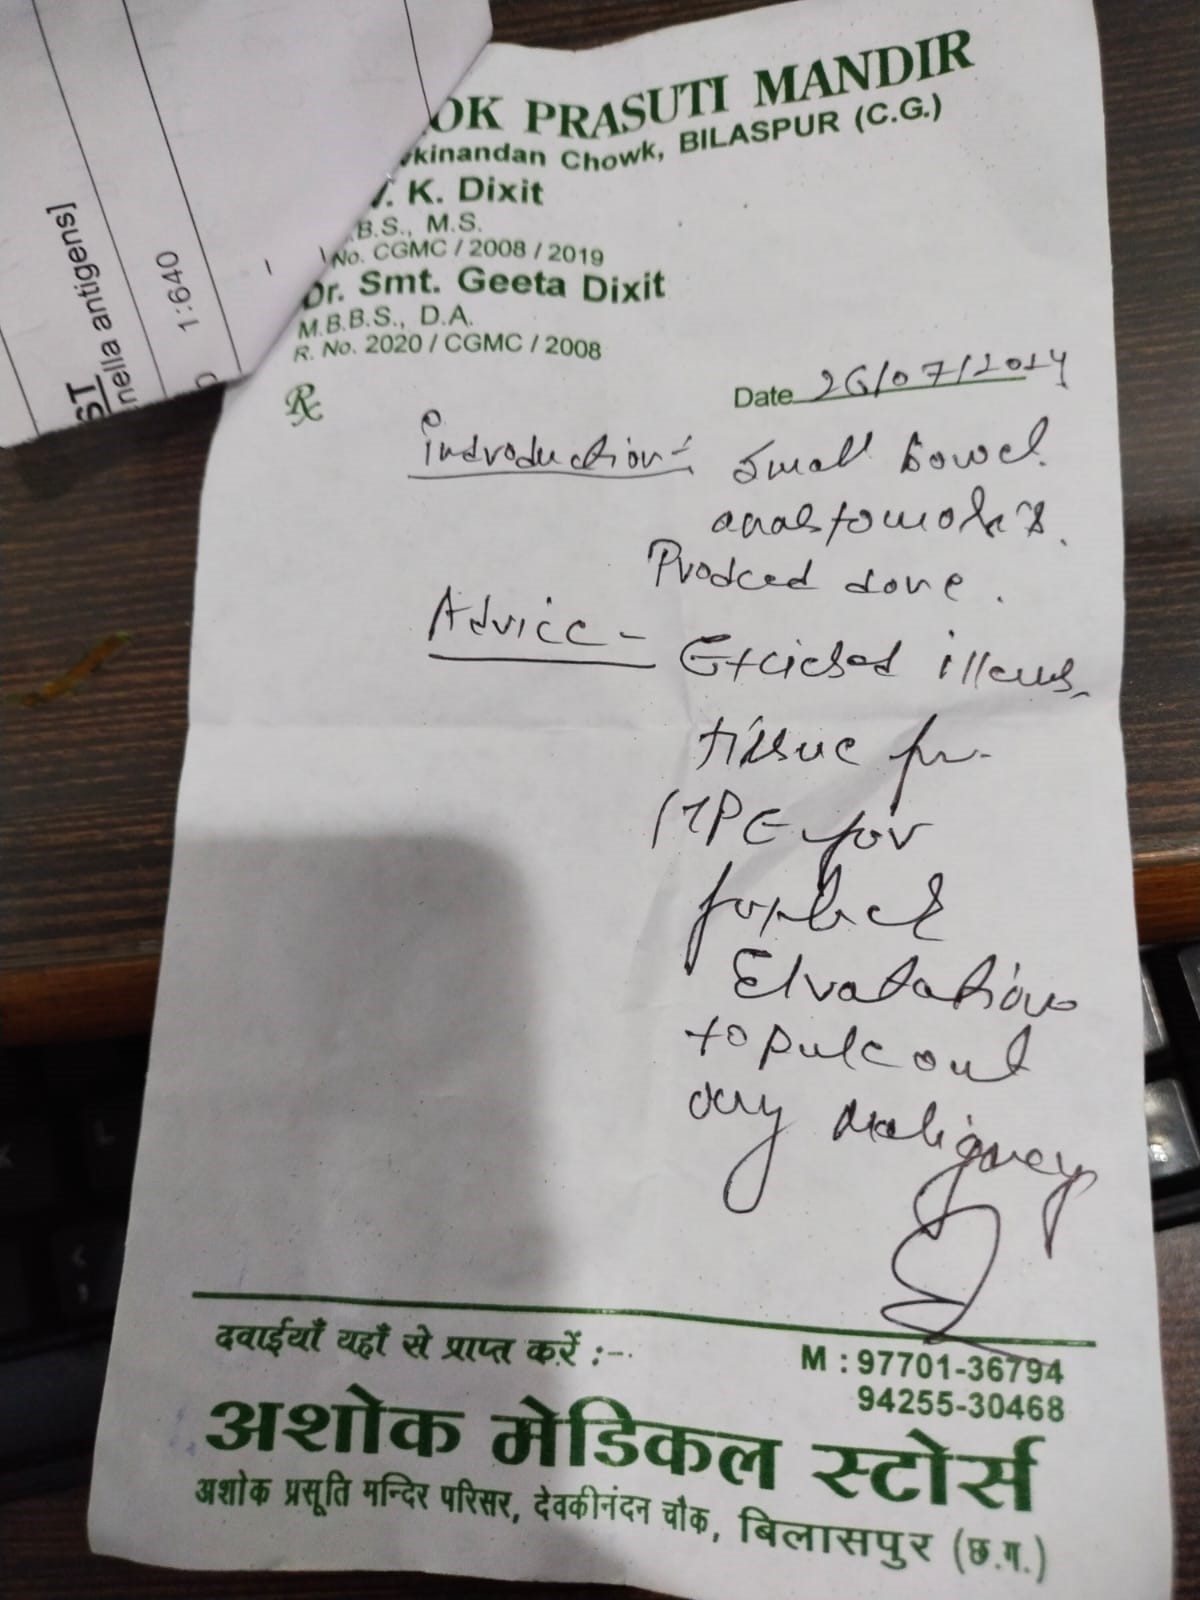 OK PRASUTI MANDIR
vkinandan Chowk, BILASPUR (C.G.)
V. K. Dixit
.B.S., M.S.
No. CGMC / 2008 / 2019
Dr. Smt. Geeta Dixit
M.B.B.S., D.A.
R. No. 2020 / CGMC / 2008
Rx
Date 26/07/2024
Introduction:- Small bowel
anastomosis.
done.
Advice - Excised illeus
tissue for
HPE for
Elvatation
to out
any
दवाईयाँ यहाँ से प्राप्त करें :-
M : 97701-36794
94255-30468
अशोक मेडिकल स्टोर्स
अशोक प्रसूति मन्दिर परिसर, देवकीनंदन चौक, बिलासपुर (छ.ग.)
ST
nella antigens]
1:640